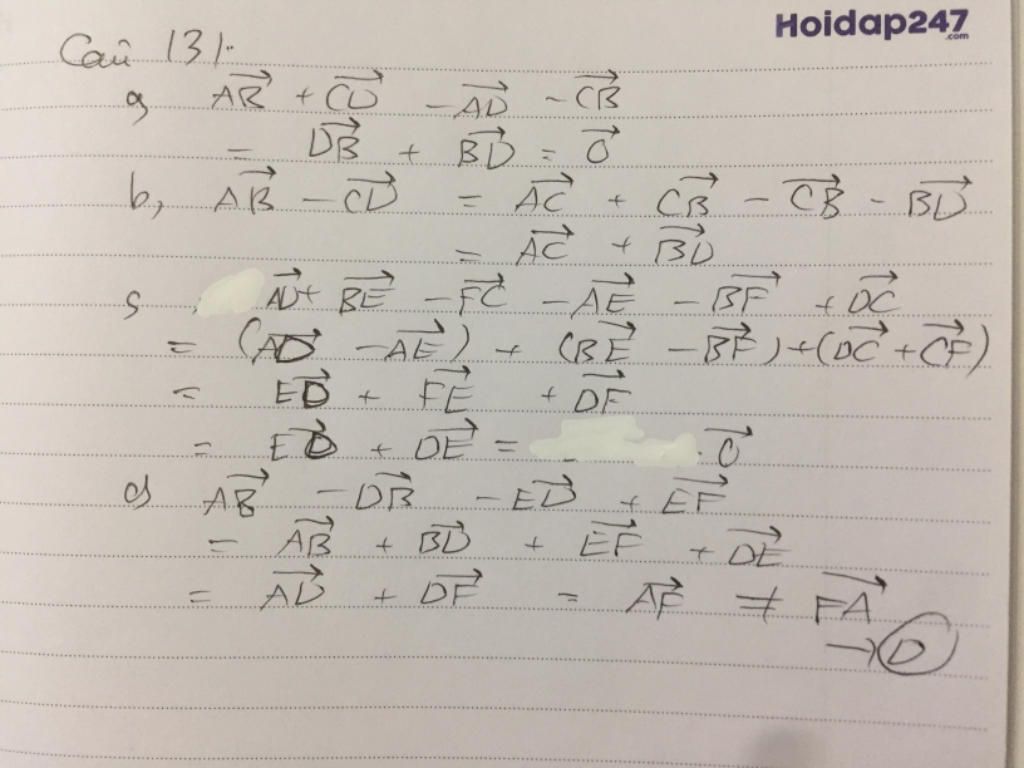 Hoidap247
.com
Câu 131.
a, $\overrightarrow{AB} + \overrightarrow{CD} - \overrightarrow{AD} - \overrightarrow{CB}$
$= \overrightarrow{DB} + \overrightarrow{BD} = \overrightarrow{0}$
b, $\overrightarrow{AB} - \overrightarrow{CD} = \overrightarrow{AC} + \overrightarrow{CB} - \overrightarrow{CB} - \overrightarrow{BD}$
$= \overrightarrow{AC} + \overrightarrow{BD}$
c, $\overrightarrow{AD} + \overrightarrow{BE} - \overrightarrow{FC} - \overrightarrow{AE} - \overrightarrow{BF} + \overrightarrow{DC}$
$= (\overrightarrow{AD} - \overrightarrow{AE}) + (\overrightarrow{BE} - \overrightarrow{BF}) + (\overrightarrow{DC} + \overrightarrow{CF})$
$= \overrightarrow{ED} + \overrightarrow{FE} + \overrightarrow{DF}$
$= \overrightarrow{ED} + \overrightarrow{DE} = \overrightarrow{0}$
d, $\overrightarrow{AB} - \overrightarrow{DB} - \overrightarrow{ED} + \overrightarrow{EF}$
$= \overrightarrow{AB} + \overrightarrow{BD} + \overrightarrow{EF} + \overrightarrow{DE}$
$= \overrightarrow{AD} + \overrightarrow{DF} = \overrightarrow{AF} \neq \overrightarrow{FA}$
→ D